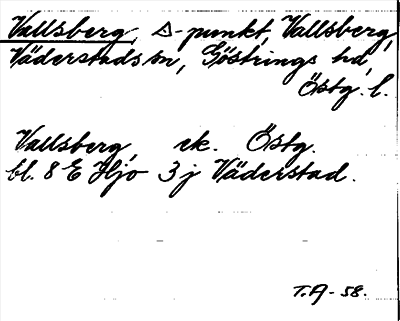 Vallsberg, △-punkt, Vallsberg,
Väderstads sn, Göstrings hd,
Östg. l.
Vallsberg, ek. Östg.
bl. 8 E Hjo 3 j Väderstad.
T.A - 58.